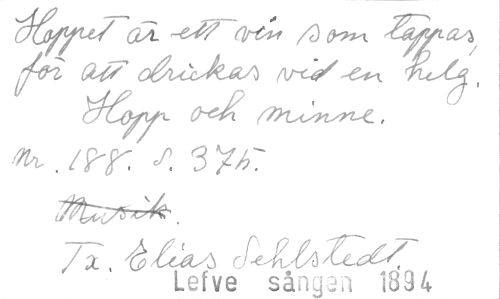 Hoppet är ett vin som tappas,
för att drickas vid en helg.
Hopp och minne.
Nr. 188. S. 375.
Musik.
Tx. Elias Sehlstedt.
Lefve sången 1894